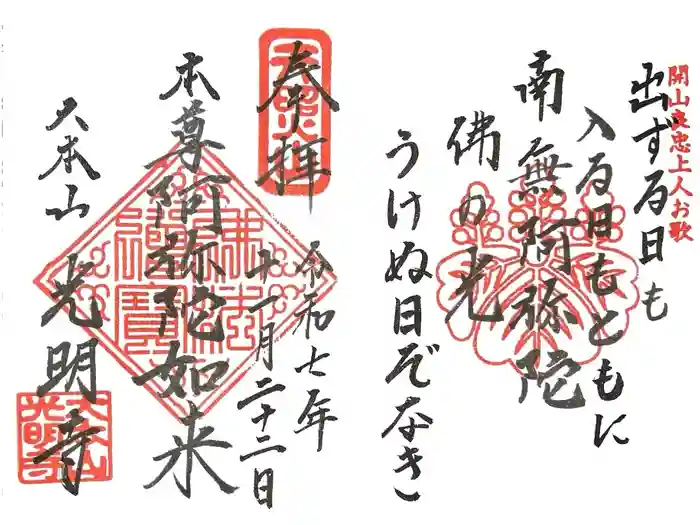 開山良忠上人お歌
出ずる日も
入る日もともに
南無阿弥陀
佛の光
うけぬ日ぞなき
天照山
奉拝
令和七年
十一月二十二日
本尊阿弥陀如来
佛法僧寳
大本山
光明寺
大本山
光明寺